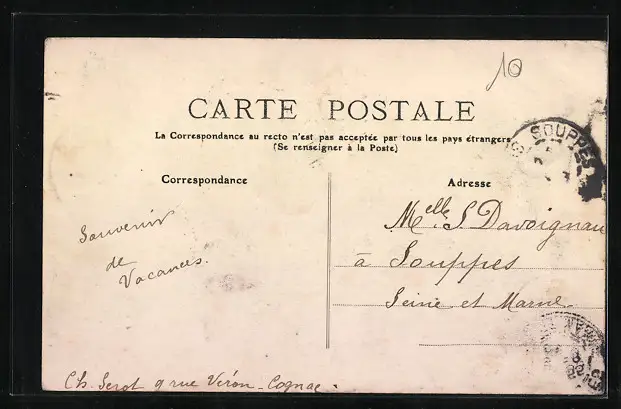 10
CARTE POSTALE
La Correspondance au recto n'est pas acceptée par tous les pays étrangers
(Se renseigner à la Poste)
SOUPPES
Correspondance
Adresse
Souvenir
de
Vacances.
Melle S. Davoignau
à Souppes
Seine et Marne.
Ch. Serot 9 rue Véron - Cognac.